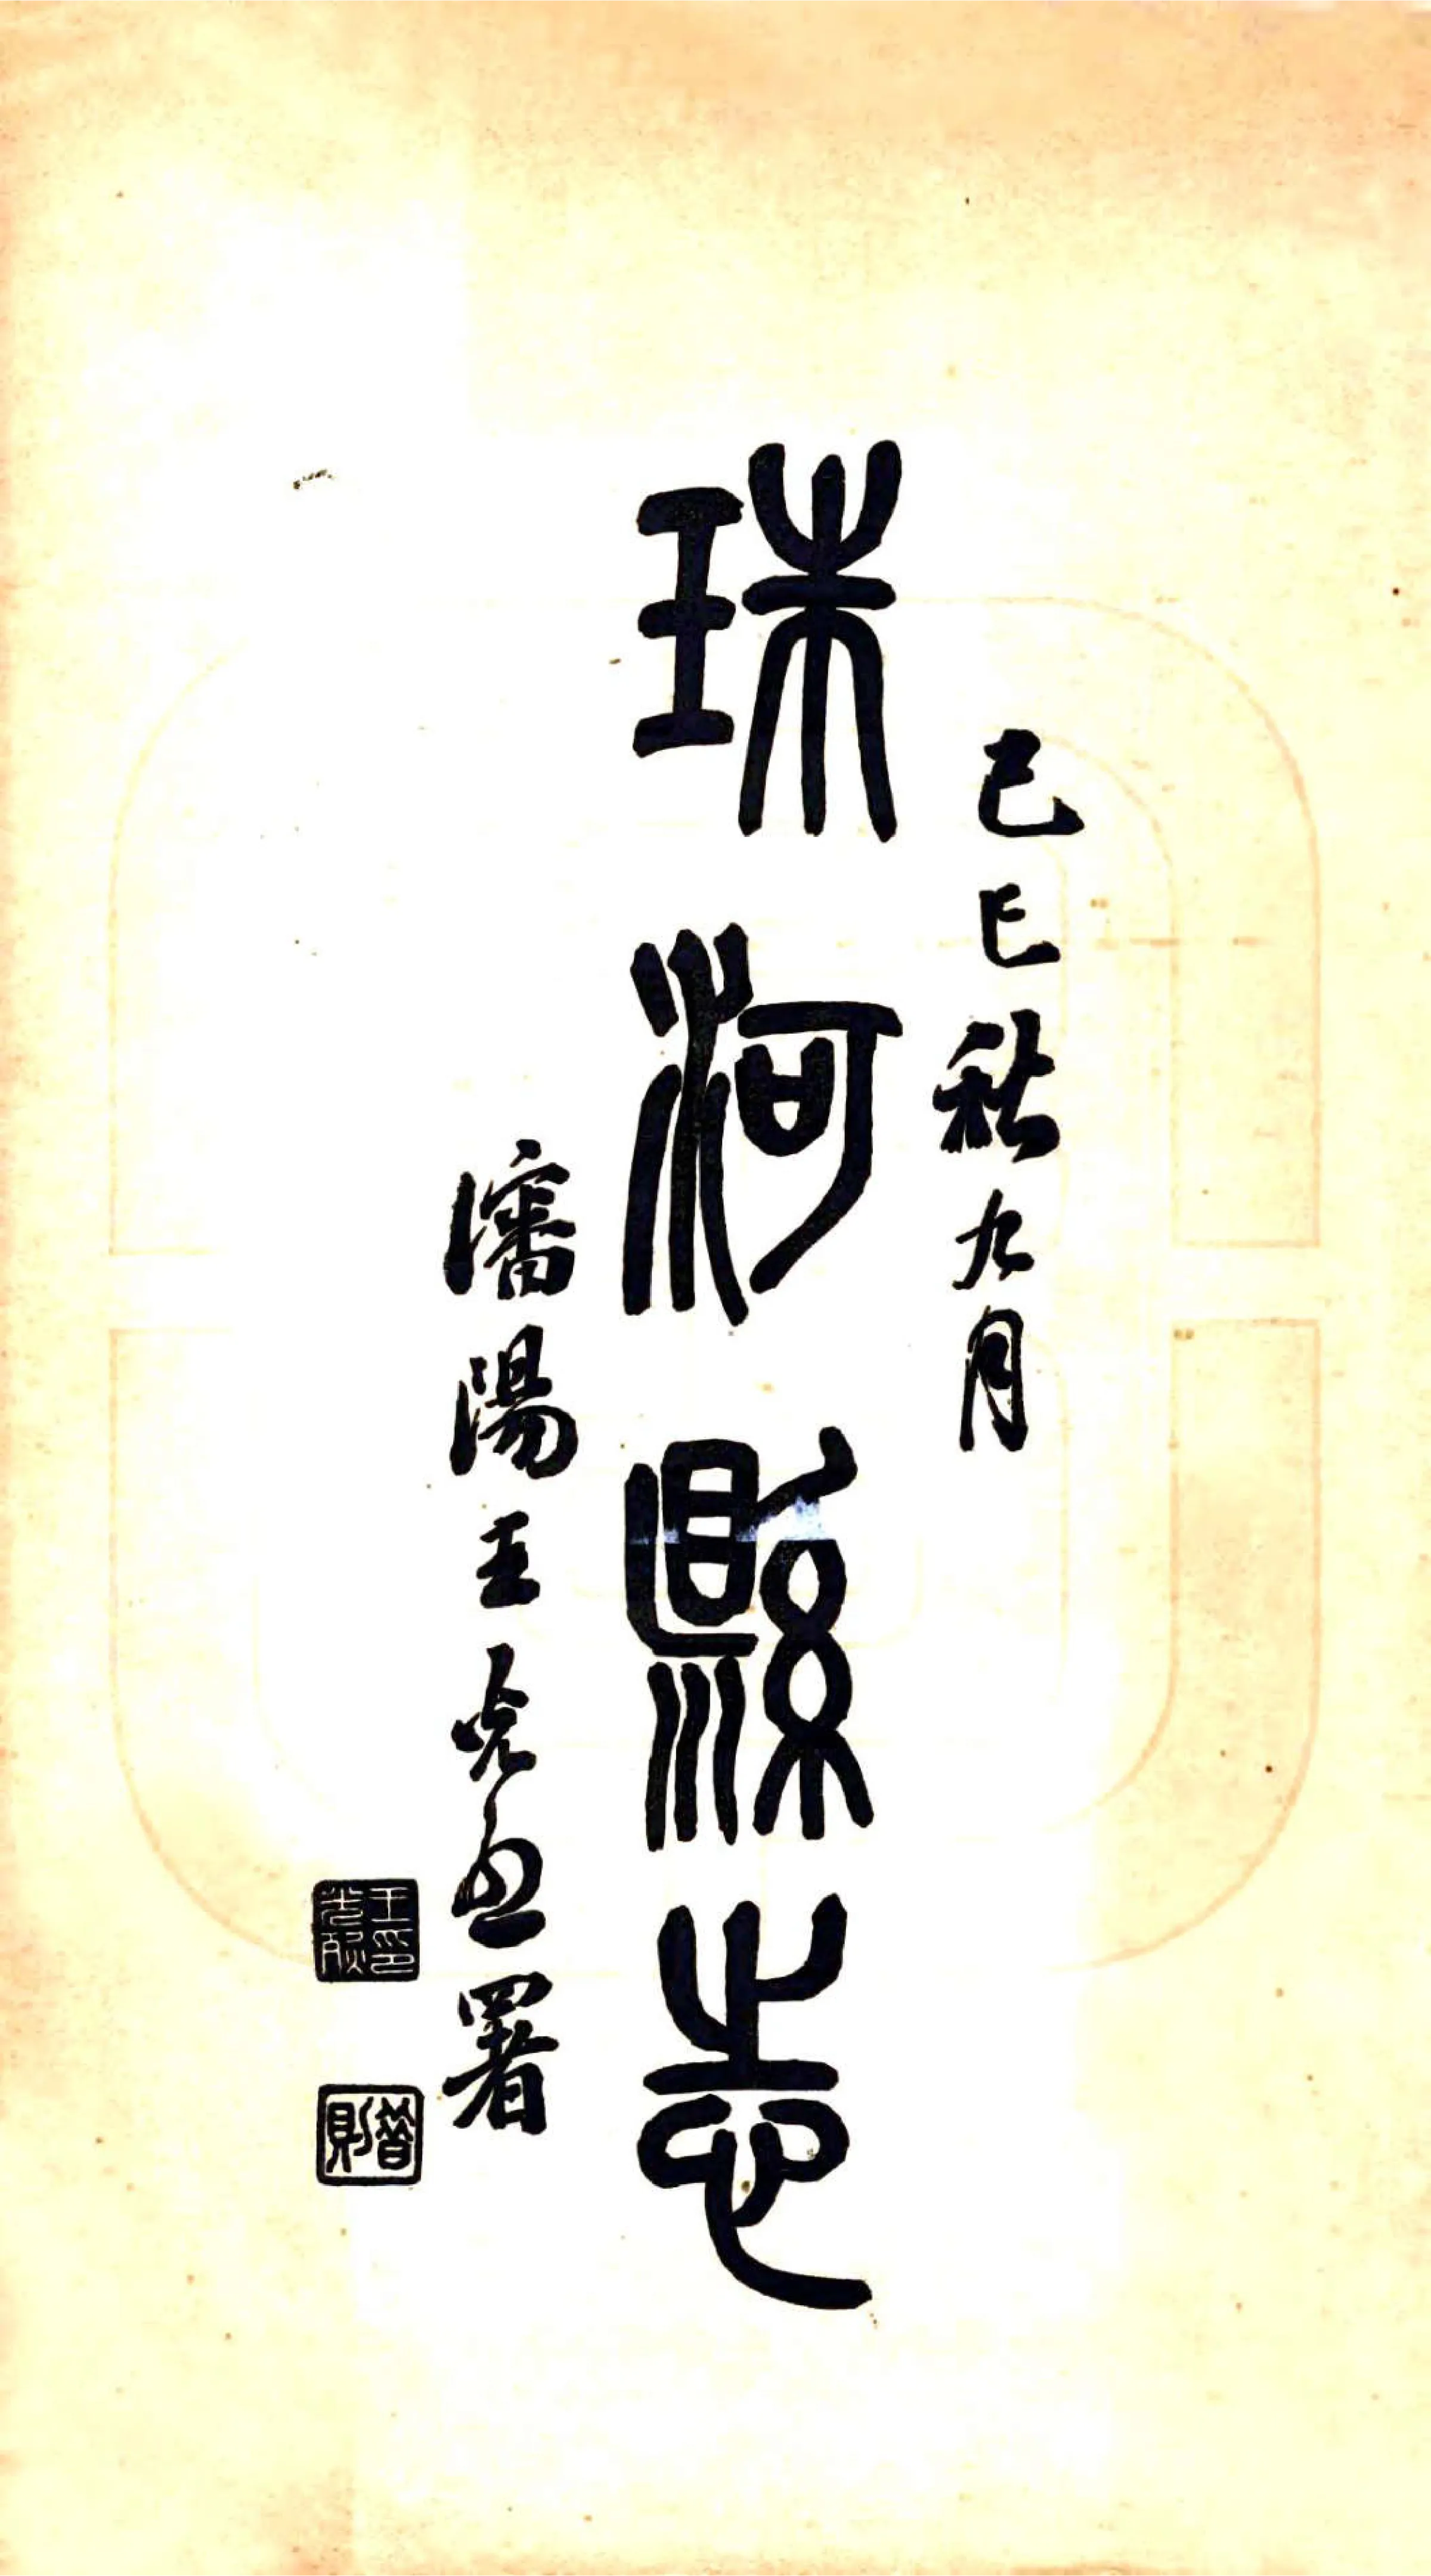 己巳秋九月
珠河縣志
瀋陽王光烈署
王印光烈